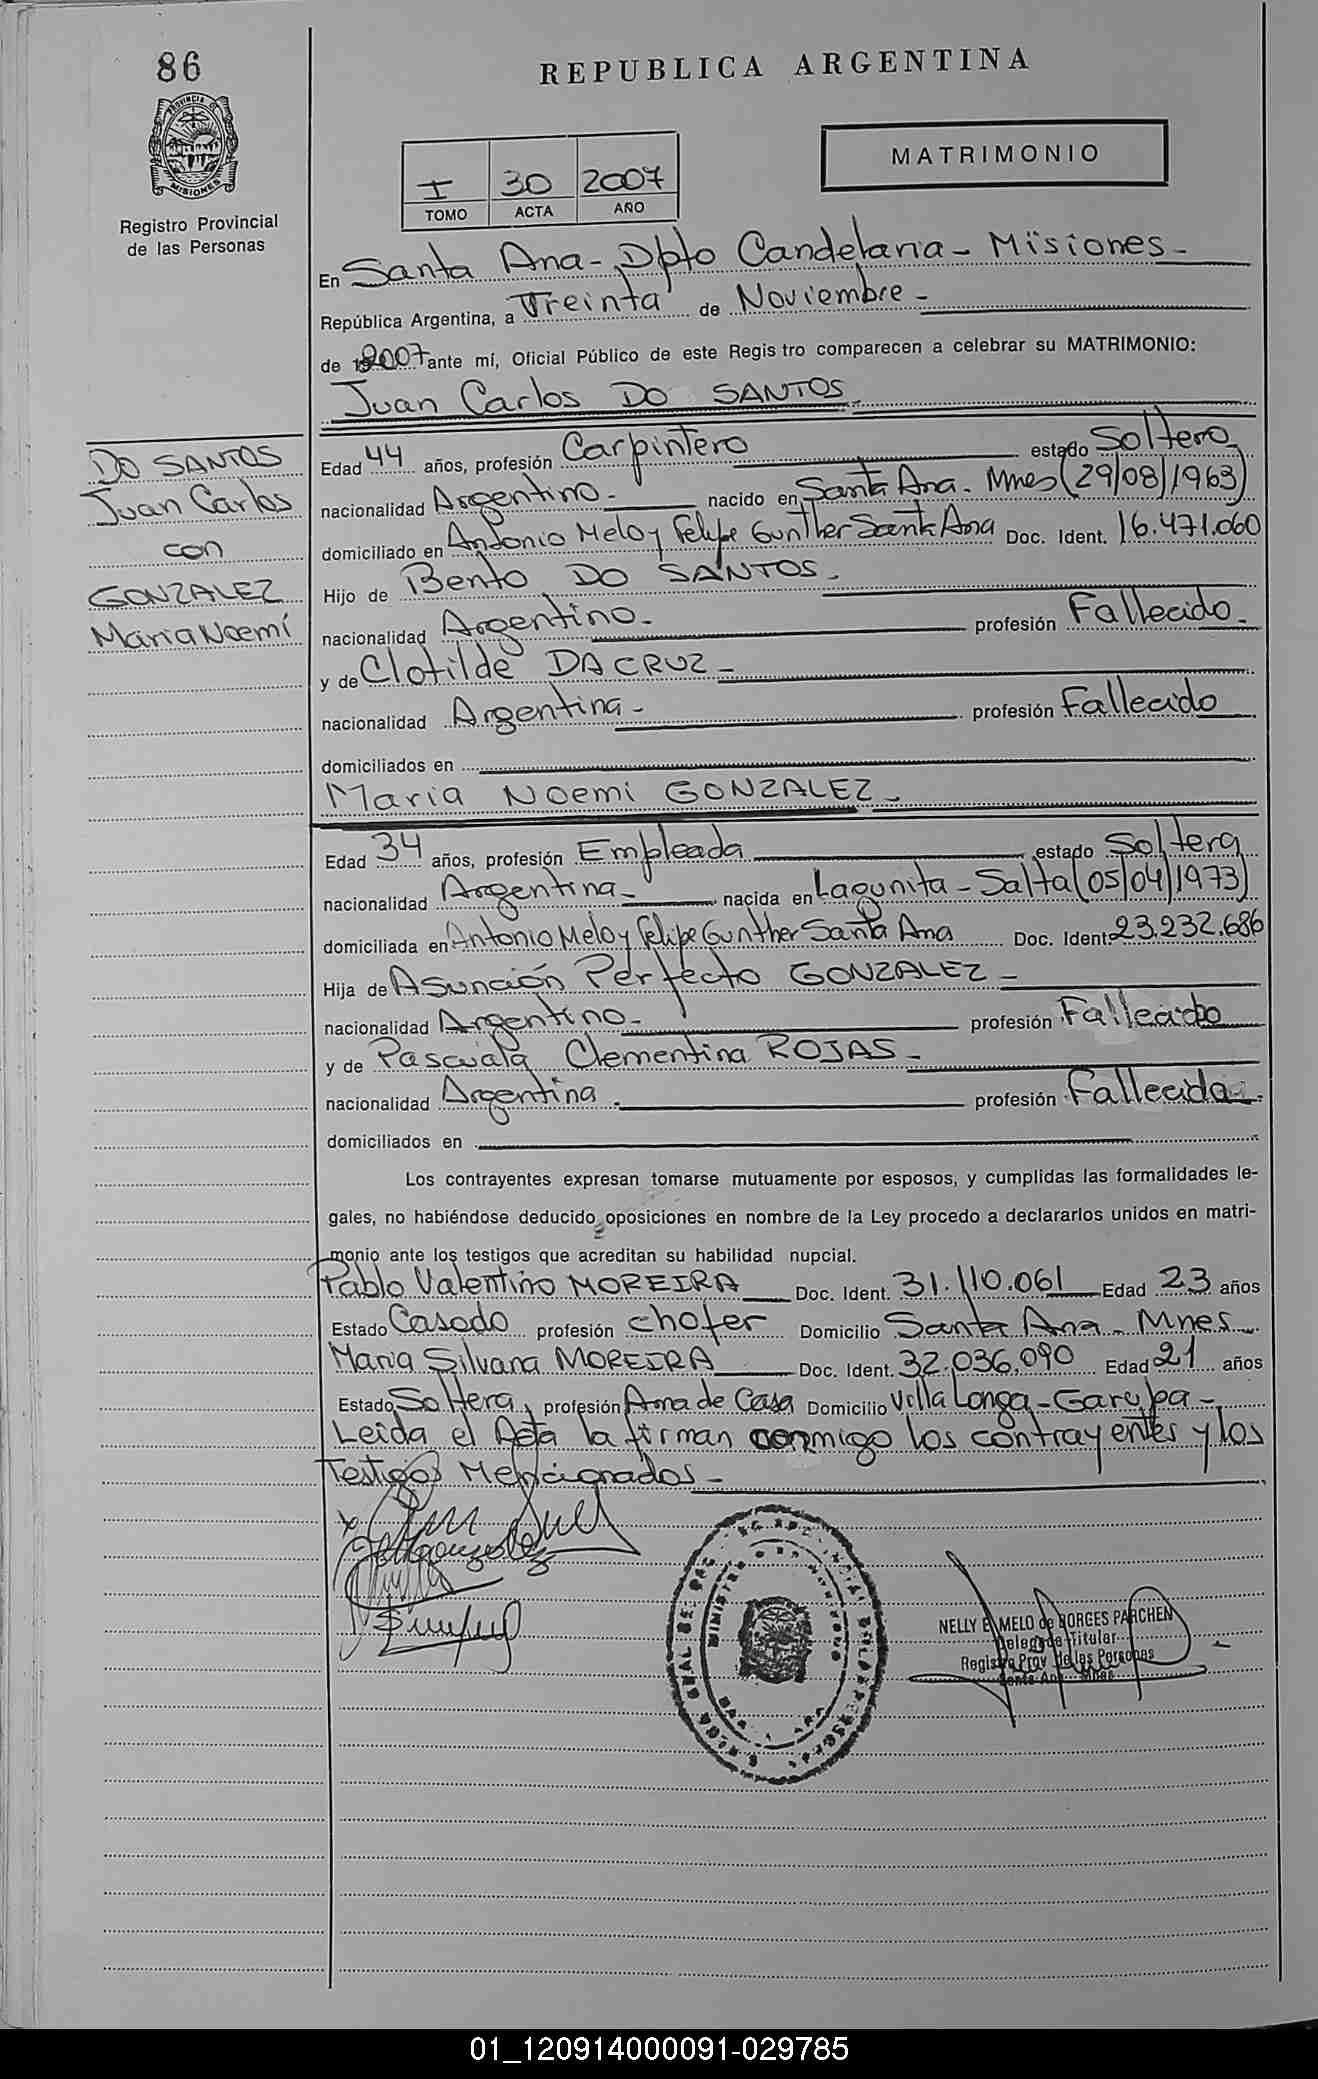 86
PROVINCIA DE
MISIONES
Registro Provincial
de las Personas
REPUBLICA ARGENTINA
MATRIMONIO
I 30 2007
TOMO ACTA AÑO
En Santa Ana - Dpto Candelaria - Misiones -
República Argentina, a Treinta de Noviembre -
de 2007 ante mí, Oficial Público de este Registro comparecen a celebrar su MATRIMONIO:
Juan Carlos DO SANTOS
DO SANTOS
Juan Carlos
con
GONZALEZ
Maria Noemí
Edad 44 años, profesión Carpintero estado Soltero
nacionalidad Argentino. - nacido en Santa Ana. Mnes (29/08/1963)
domiciliado en Antonio Melo y Felipe Gunther Santa Ana Doc. Ident. 16.471.060
Hijo de Bento DO SANTOS -
nacionalidad Argentino. profesión Fallecido.
y de Clotilde DA CRUZ -
nacionalidad Argentina - profesión Fallecido
domiciliados en
Maria Noemi GONZALEZ -
Edad 34 años, profesión Empleada estado Soltera
nacionalidad Argentina - nacida en Lagunita - Salta (05/04/1973)
domiciliada en Antonio Melo y Felipe Gunther Santa Ana Doc. Ident. 23.232.686
Hija de Asunción Perfecto GONZALEZ -
nacionalidad Argentino - profesión Fallecido
y de Pascuala Clementina ROJAS -
nacionalidad Argentina - profesión Fallecida.
domiciliados en
Los contrayentes expresan tomarse mutuamente por esposos, y cumplidas las formalidades le-
gales, no habiéndose deducido oposiciones en nombre de la Ley procedo a declararlos unidos en matri-
monio ante los testigos que acreditan su habilidad nupcial.
Pablo Valentino MOREIRA Doc. Ident. 31.110.061 Edad 23 años
Estado Casado profesión chofer Domicilio Santa Ana - Mnes
Maria Silvana MOREIRA Doc. Ident. 32.036.090 Edad 21 años
Estado Soltera profesión Ama de Casa Domicilio Villa Longa - Garupa -
Leida el Acta la firman conmigo los contrayentes y los
Testigos Mencionados -
NELLY E. MELO de BORGES PARCHEN
Delegada Titular
Registro Prov. de las Personas
Santa Ana - Mnes
01_120914000091-029785